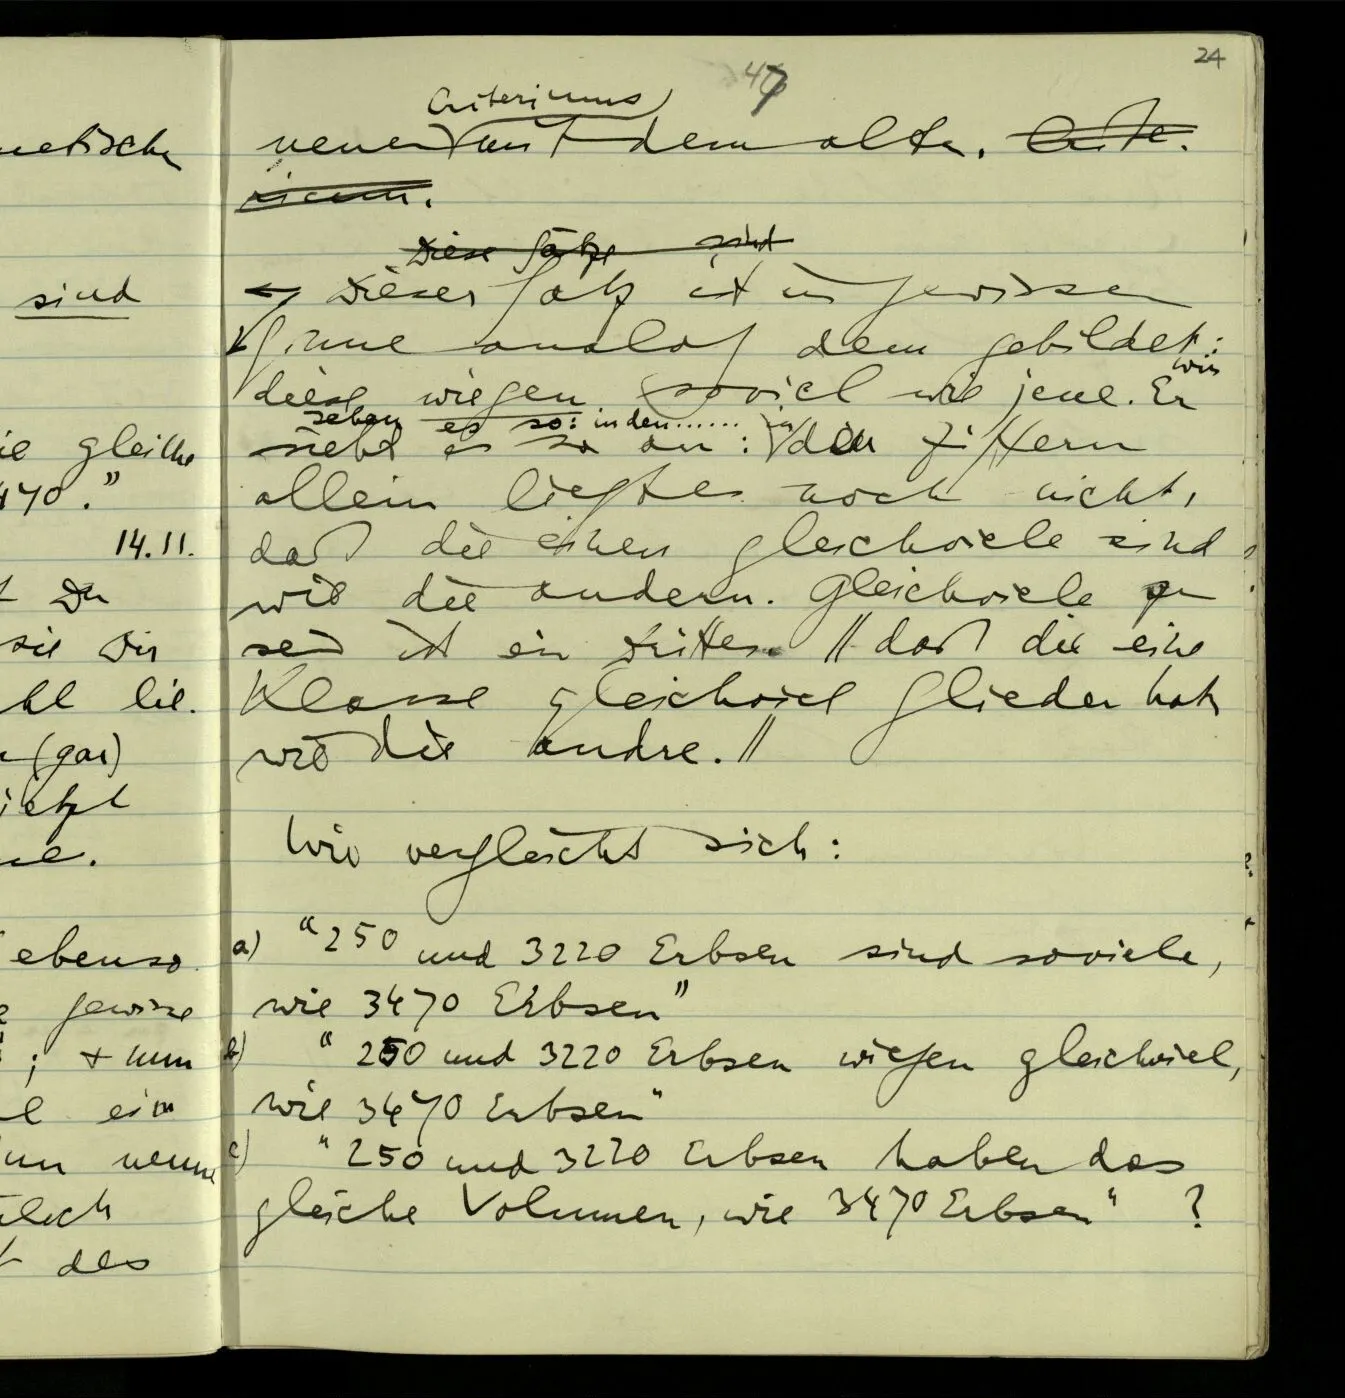 24
47
Criteriums
neuen mit dem alten. Crite-
rium.
Diese Sätze sind
Dieser Satz ist in gewissem
Sinne analog dem gebildet:
diese wiegen soviel wie jene. Er wir
sehen es so: in den...... in
sieht es so an: den Ziffern
allein liegt es noch nicht,
daß die einen gleichviele sind
wie die andern. Gleichviele zu
sein ist ein Drittes. // daß die eine
Klasse gleichviel Glieder hat,
wie die andre. //
Wie vergleicht sich:
a) "250 und 3220 Erbsen sind soviele,
wie 3470 Erbsen"
b) "250 und 3220 Erbsen wiegen gleichviel,
wie 3470 Erbsen"
c) "250 und 3220 Erbsen haben das
gleiche Volumen, wie 3470 Erbsen" ?
sind
gleiche
470."
14.11.
Du
sie Dir
(gar)
jetzt
ebenso
gewisse
; + nun
ein
nenne
des